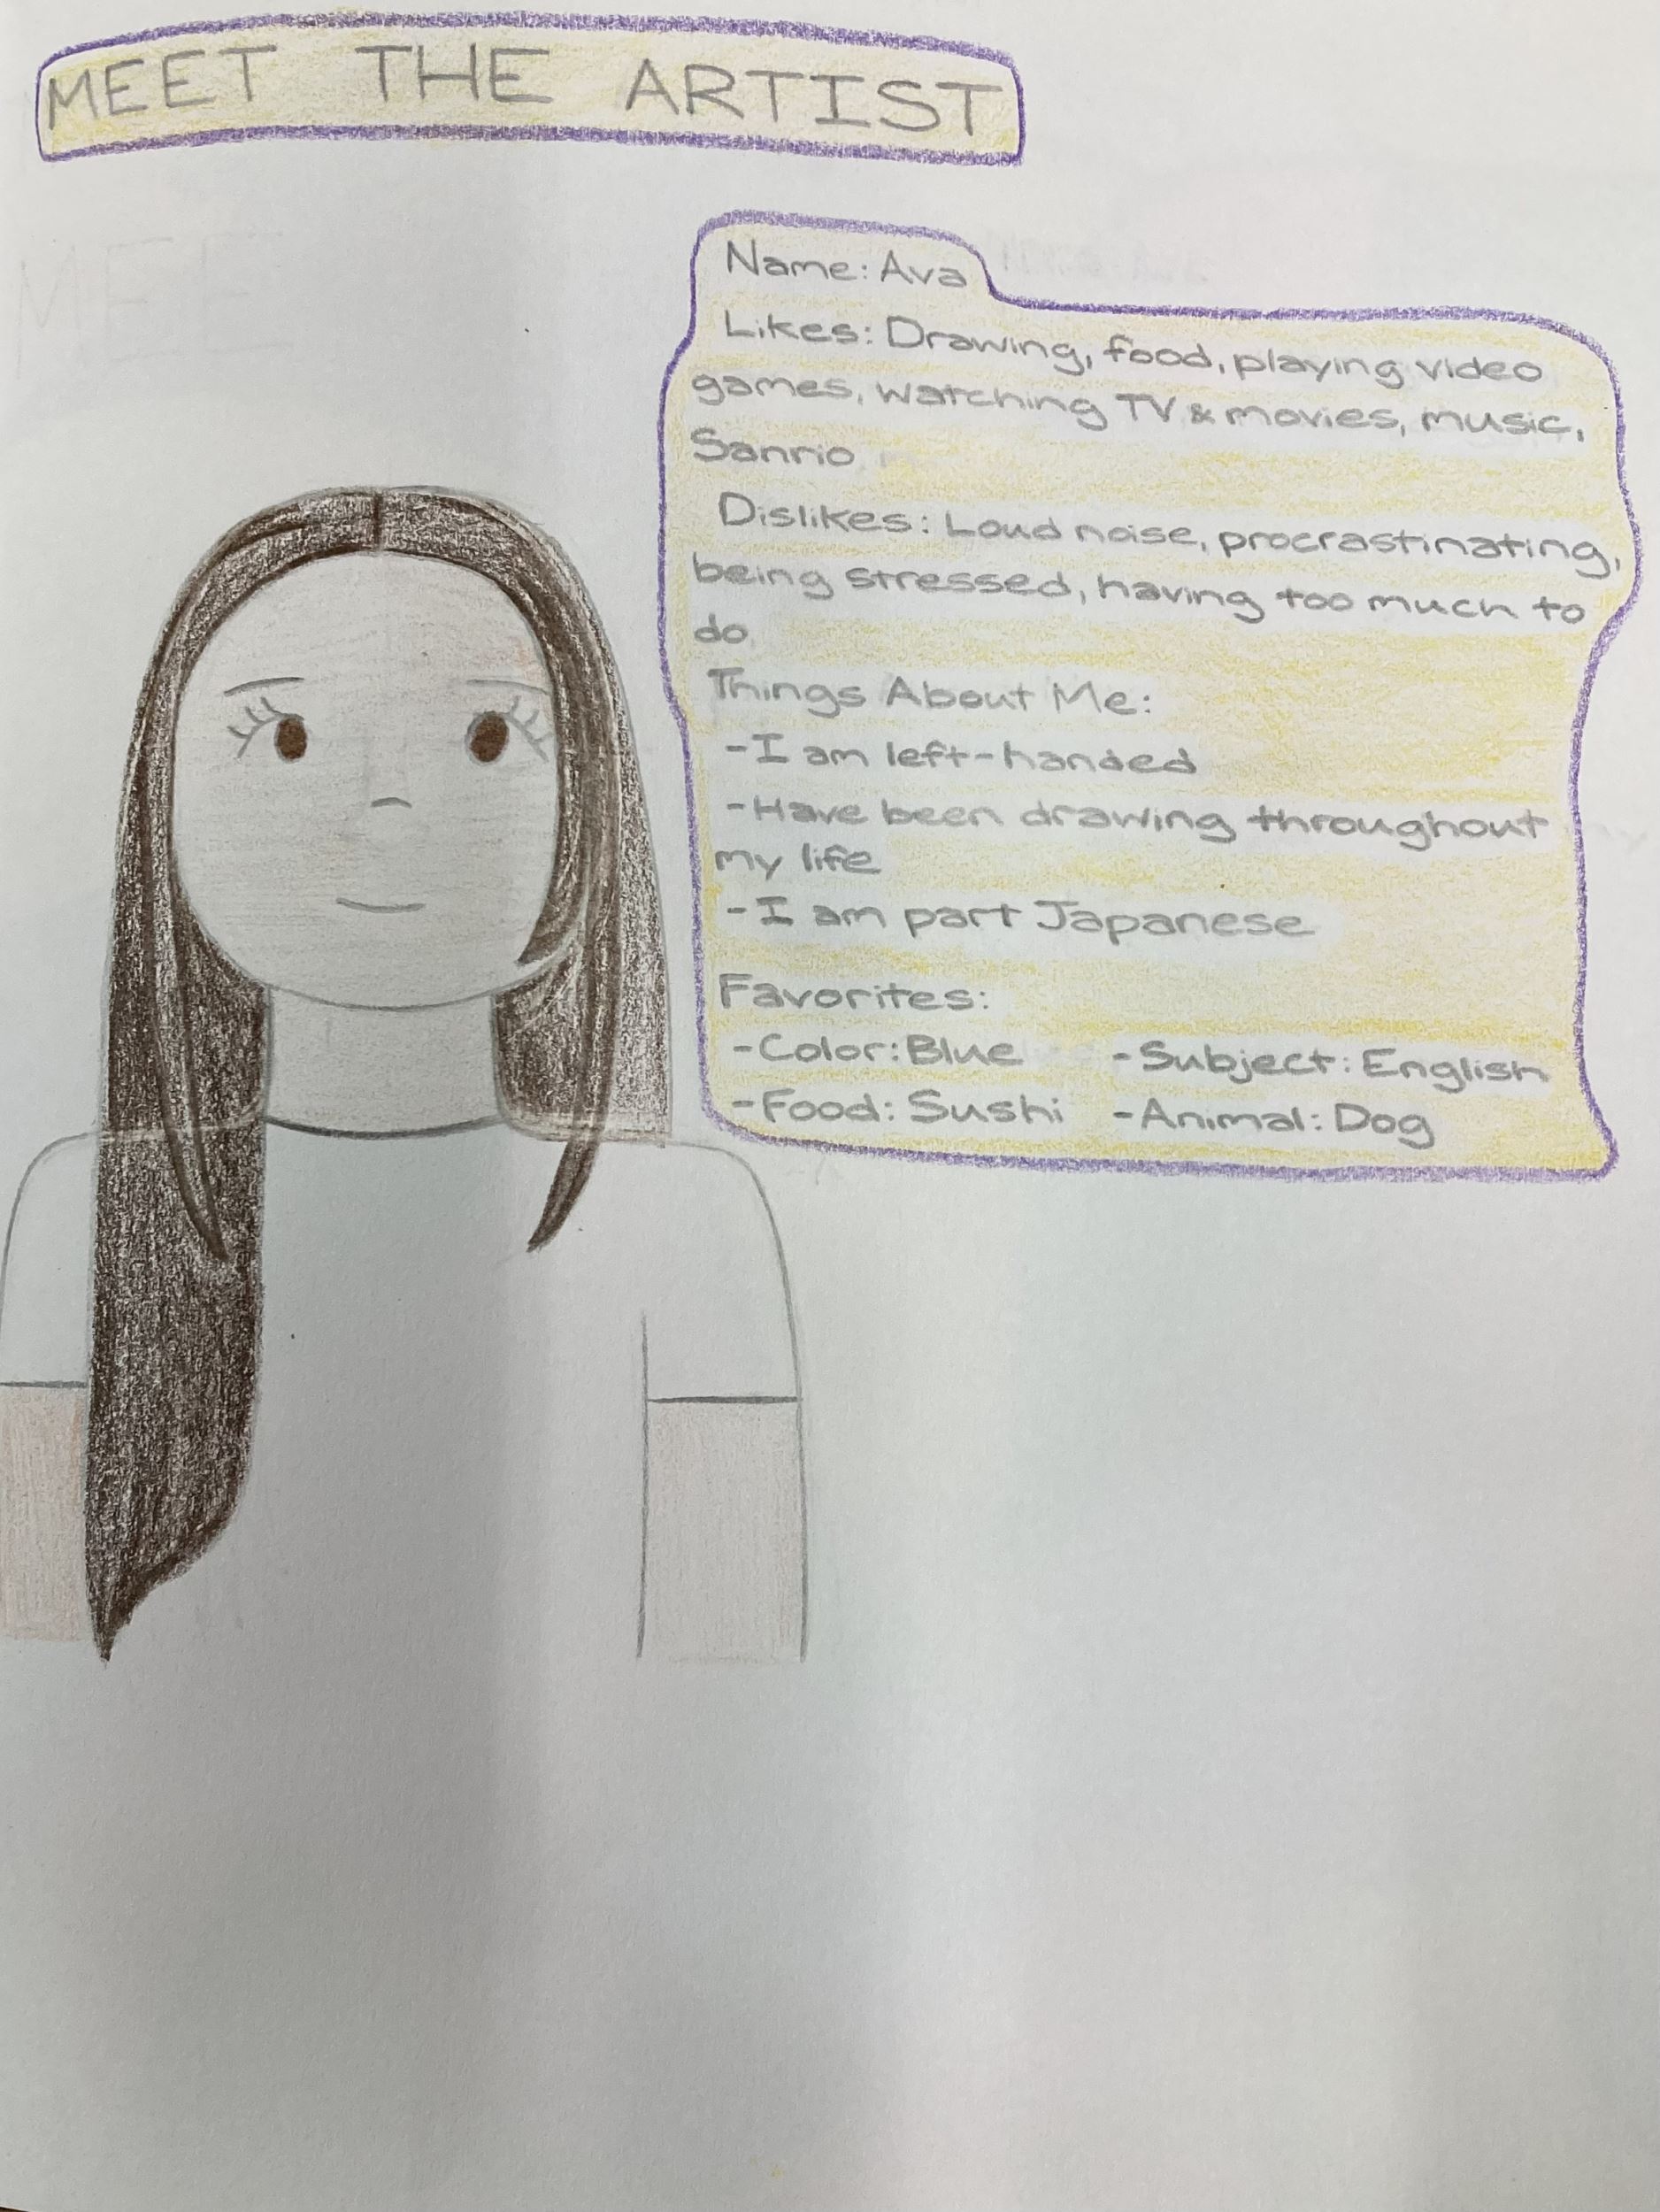 MEET THE ARTIST
Name: Ava
Likes: Drawing, food, playing video
games, watching TV & movies, music,
Sanrio
Dislikes: Loud noise, procrastinating,
being stressed, having too much to
do
Things About Me:
-I am left-handed
-Have been drawing throughout
my life
-I am part Japanese
Favorites:
-Color: Blue -Subject: English
-Food: Sushi -Animal: Dog